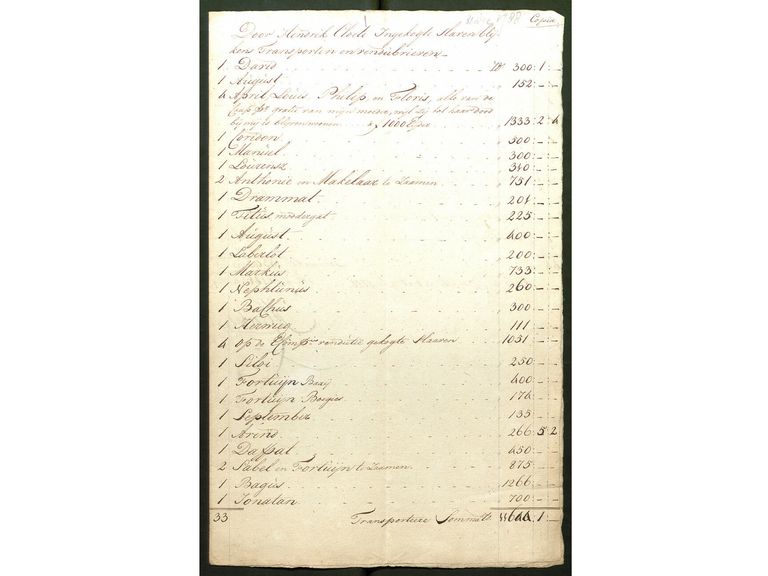 Copia
Door Hendrik Cloete Ingekogte Slaven bly-
kens Transporten en vendubrieven
1 David 300:1:–
1 August 152:–:–
4 April, Louis Philip, en Floris, alle van de
gratis van mijn moeder, mits zij tot haar dood
bij mij te blijven wonen 1000 1333:2:4
1 Coridon 300:–:–
1 Manuel 300:–:–
1 Lourensz 340:–:–
2 Anthonie en Makelaar te Zaamen 751:–:–
1 Drammat 201:–:–
1 Titus 225:–:–
1 August 400:–:–
1 Laberlot 200:–:–
1 Markus 733:–:–
1 Nephtunus 260:–:–
1 Bachus 300:–:–
1 111:–:–
4 op de vendutie gekogte Slaaven 1031:–:–
1 Silvi 250:–:–
1 Fortuijn 400:–:–
1 Fortuijn Boegies 174:–:–
1 September 135:–:–
1 Arend 266:5:2
1 Dapat 450:–:–
2 Sabel en Fortuijn te Zaamen 875:–:–
1 Bagus 1266:–:–
1 Jonatan 700:–:–
33 Transporteere Somma 1:–